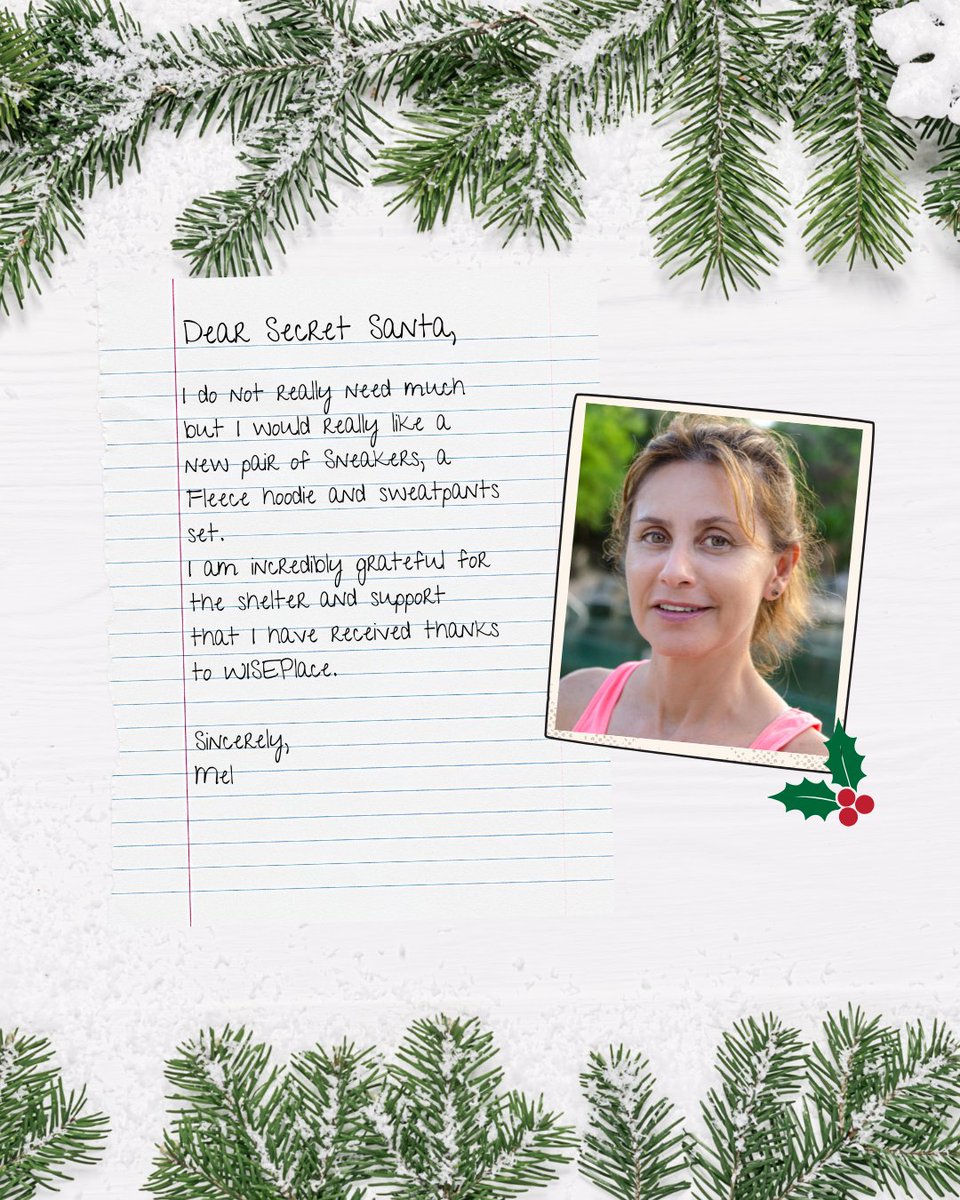 Dear Secret Santa,
I do not really need much
but I would really like a
new pair of sneakers, a
Fleece hoodie and sweatpants
set.
I am incredibly grateful for
the shelter and support
that I have received thanks
to WISEPlace.
Sincerely,
Mel